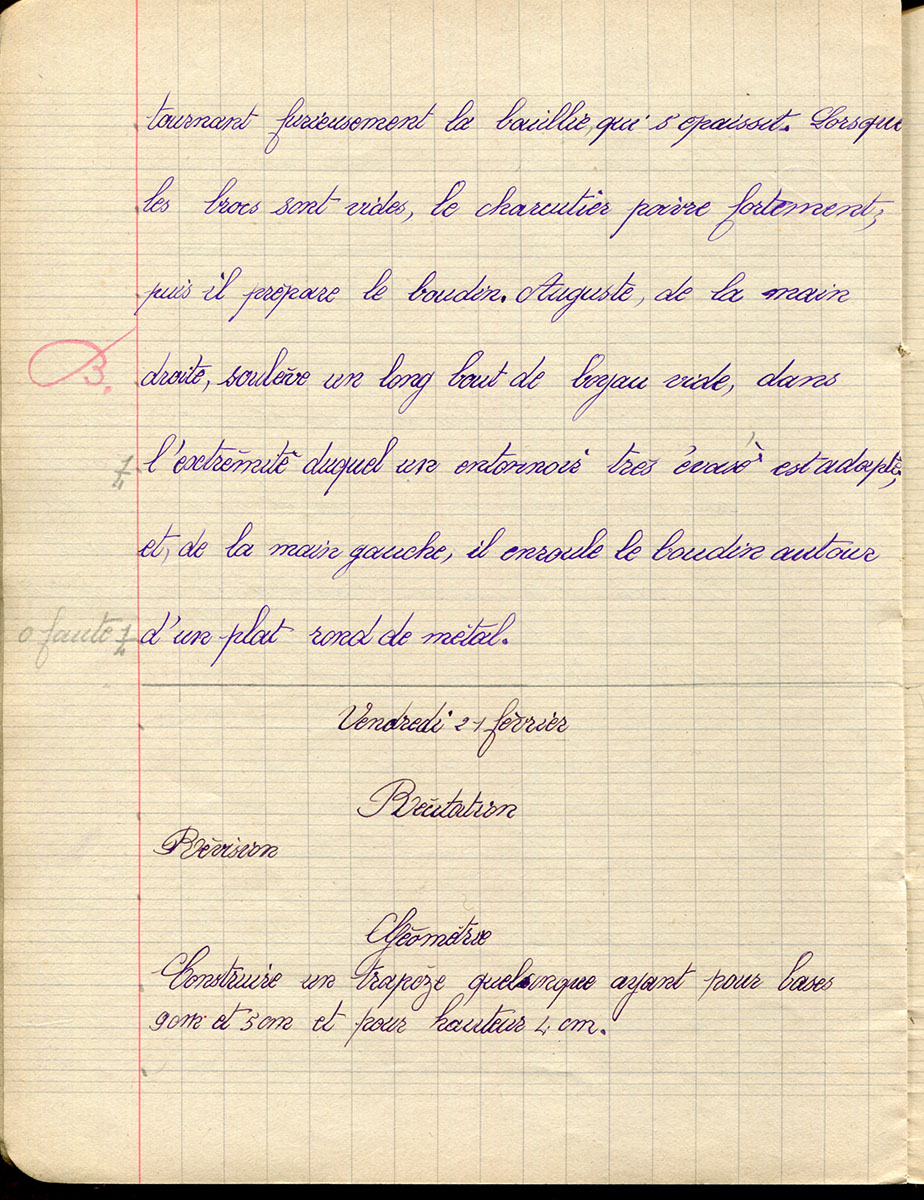 tournant furieusement la bouillie, qui s'épaissit. Lorsque
les brocs sont vides, le charcutier poivre fortement,
puis il prépare le boudin. Auguste, de la main
B.
droite, soulève un long bout de boyau vide, dans
l'extrémité duquel un entonnoir très évasé est adapté,
et, de la main gauche, il enroule le boudin autour
0 faute d'un plat rond de métal.
Vendredi 21 février
Récitation
Révision
Géométrie
Construire un trapèze quelconque ayant pour bases
9cm et 5cm et pour hauteur 4 cm.